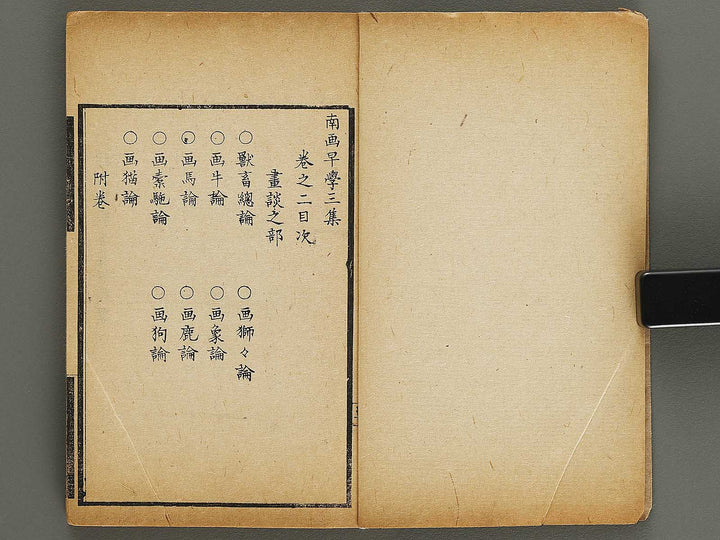 南画早學三集
卷之二目次
畫談之部
○獸畜總論
○画獅々論
○画牛論
○画象論
○画馬論
○画鹿論
○画橐駞論
○画狗論
○画猫論
附卷